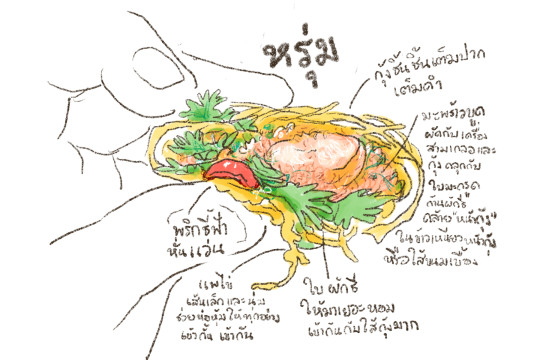 หรุ่ม
กุ้งชิ้นชิ้นเต็มปาก
เต็มคำ
มะพร้าวขูด
ผัดกับเครื่อง
สามเกลอและ
กุ้งคลุกกับ
ใบมะกรูด
ก้านผักชี
คล้าย"หน้ากุ้ง"
ในข้าวเหนียวหน้ากุ้ง
หรือไส้ขนมเบื้อง
พริกชี้ฟ้า
หั่นแว่น
แพไข่
เส้นเล็กและนุ่ม
ช่วยห่อหุ้มให้ทุกอย่าง
เข้ากั๊น เข้ากัน
ใบผักชี
ให้มาเยอะหอม
เข้ากันกับไส้กุ้งมาก